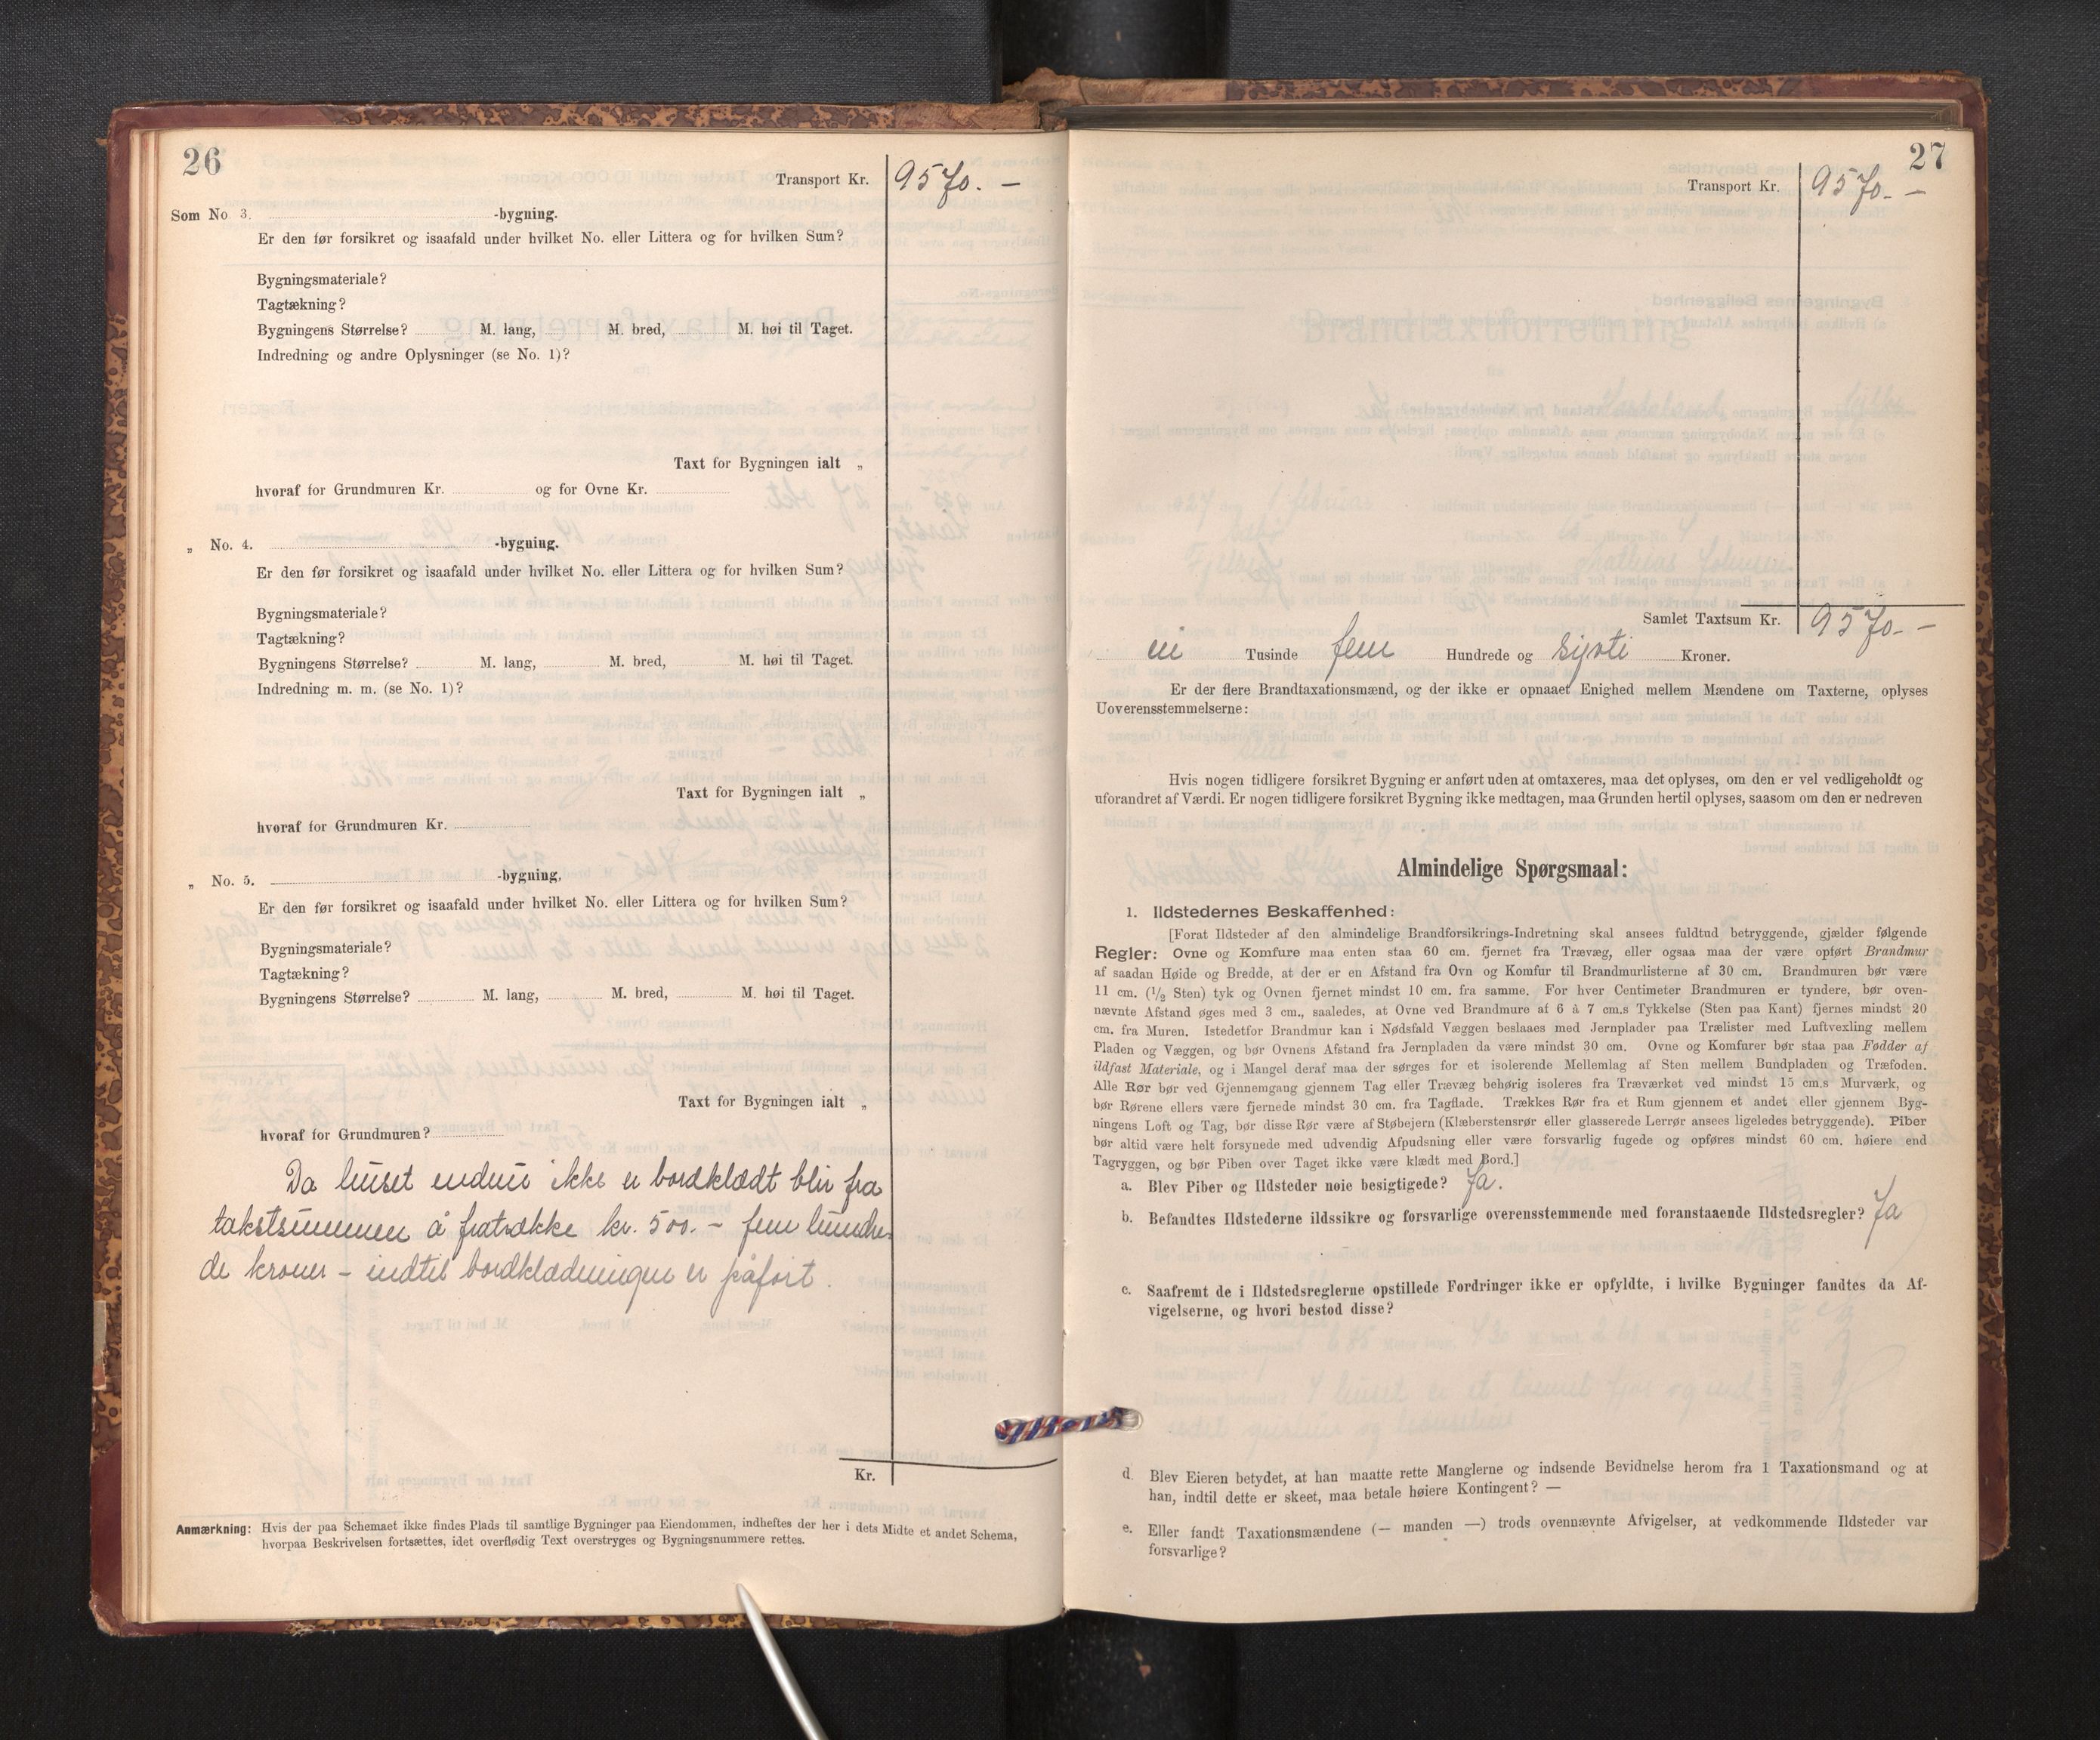 26
Transport Kr. 9570.-
Som No 3. -bygning.
Er den før forsikret og isaafald under hvilket No. eller Littera og for hvilken Sum?
Bygningsmateriale?
Tagtækning?
Bygningens Størrelse? M. lang, M. bred, M. høi til Taget.
Indredning og andre Oplysninger (se No. 1)?
Taxt for Bygningen ialt „
hvoraf for Grundmuren Kr. og for Ovne Kr.
„ No. 4. -bygning.
Er den før forsikret og isaafald under hvilket No. eller Littera og for hvilken Sum?
Bygningsmateriale?
Tagtækning?
Bygningens Størrelse? M. lang, M. bred, M. høi til Taget.
Indredning m. m. (se No. 1)?
Taxt for Bygningen ialt „
hvoraf for Grundmuren Kr.
„ No. 5. -bygning,
Er den før forsikret og isaafald under hvilket No. eller Littera og for hvilken Sum?
Bygningsmateriale?
Tagtækning?
Bygningens Størrelse? M. lang, M. bred, M. høi til Taget.
Taxt for Bygningen ialt „
hvoraf for Grundmuren?
Da huset endnu ikke er bordklædt blir fra
takstsummen å fratrække kr. 500.- fem hundre-
de kroner - indtil bordklædningen er påført.
Kr.
Anmærkning: Hvis der paa Schemaet ikke findes Plads til samtlige Bygninger paa Eiendommen, indheftes der her i dets Midte et andet Schema,
hvorpaa Beskrivelsen fortsættes, idet overflødig Text overstryges og Bygningsnummere rettes.
27
Transport Kr. 9570.-
Samlet Taxtsum Kr. 9570.-
ni Tusinde fem Hundrede og sytti Kroner.
Er der flere Brandtaxationsmænd, og der ikke er opnaaet Enighed mellem Mændene om Taxterne, oplyses
Uoverensstemmelserne:
Hvis nogen tidligere forsikret Bygning er anført uden at omtaxeres, maa det oplyses, om den er vel vedligeholdt og
uforandret af Værdi. Er nogen tidligere forsikret Bygning ikke medtagen, maa Grunden hertil oplyses, saasom om den er nedreven
Almindelige Spørgsmaal:
1. Ildstedernes Beskaffenhed:
[Forat Ildsteder af den almindelige Brandforsikrings-Indretning skal ansees fuldtud betryggende, gjælder følgende
Regler: Ovne og Komfure maa enten staa 60 cm. fjernet fra Trævæg, eller ogsaa maa der være opført Brandmur
af saadan Høide og Bredde, at der er en Afstand fra Ovn og Komfur til Brandmurlisterne af 30 cm. Brandmuren bør være
11 cm. (1/2 Sten) tyk og Ovnen fjernet mindst 10 cm. fra samme. For hver Centimeter Brandmuren er tyndere, bør oven-
nævnte Afstand øges med 3 cm., saaledes, at Ovne ved Brandmure af 6 à 7 cm.s Tykkelse (Sten paa Kant) fjernes mindst 20
cm. fra Muren. Istedetfor Brandmur kan i Nødsfald Væggen beslaaes med Jernplader paa Trælister med Luftvexling mellem
Pladen og Væggen, og bør Ovnens Afstand fra Jernpladen da være mindst 30 cm. Ovne og Komfurer bør staa paa Fødder af
ildfast Materiale, og i Mangel deraf maa der sørges for et isolerende Mellemlag af Sten mellem Bundpladen og Træfoden.
Alle Rør bør ved Gjennemgang gjennem Tag eller Trævæg behørig isoleres fra Træværket ved mindst 15 cm.s Murværk, og
bør Rørene ellers være fjernede mindst 30 cm. fra Tagflade. Trækkes Rør fra et Rum gjennem et andet eller gjennem Byg-
ningens Loft og Tag, bør disse Rør være af Støbejern (Klæberstensrør eller glasserede Lerrør ansees ligeledes betryggende). Piber
bør altid være helt forsynede med udvendig Afpudsning eller være forsvarlig fugede og opføres mindst 60 cm. høiere end
Tagryggen, og bør Piben over Taget ikke være klædt med Bord.]
a. Blev Piber og Ildsteder nøie besigtigede? Ja.
b. Befandtes Ildstederne ildssikre og forsvarlige overensstemmende med foranstaaende Ildstedsregler? Ja
c. Saafremt de i Ildstedsreglerne opstillede Fordringer ikke er opfyldte, i hvilke Bygninger fandtes da Af-
vigelserne, og hvori bestod disse?
d. Blev Eieren betydet, at han maatte rette Manglerne og indsende Bevidnelse herom fra 1 Taxationsmand og at
han, indtil dette er skeet, maa betale høiere Kontingent? —
e. Eller fandt Taxationsmændene (— manden —) trods ovennævnte Afvigelser, at vedkommende Ildsteder var
forsvarlige?